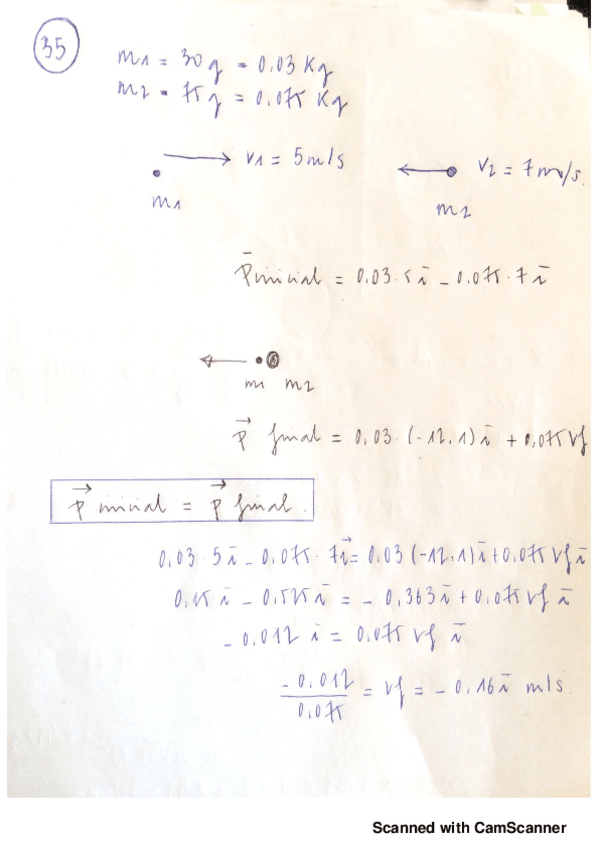 35
m1 = 30g = 0.03 Kg
m2 = 75g = 0.075 Kg
v1 = 5m/s
v2 = 7m/s.
m1
m2
p inicial = 0.03·5 i - 0.075·7 i
m1 m2
p final = 0.03·(-12.1) i + 0.075 vf
p inicial = p final.
0.03·5 i - 0.075·7i = 0.03 (-12.1) i + 0.075 vf i
0.15 i - 0.525 i = - 0.363 i + 0.075 vf i
- 0.012 i = 0.075 vf i
-0.012 / 0.075 = vf = - 0.16 i m/s.
Scanned with CamScanner